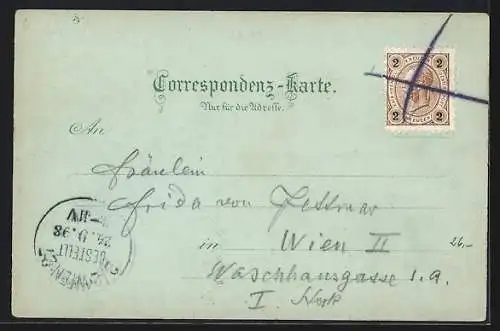 Correspondenz-Karte.
Nur für die Adresse.
2 2
2 2
An
Fräulein
Frida von
in Wien II
26,-
Waschhausgasse 1.a.
I Stock
BESTELLT
24. 9. 98